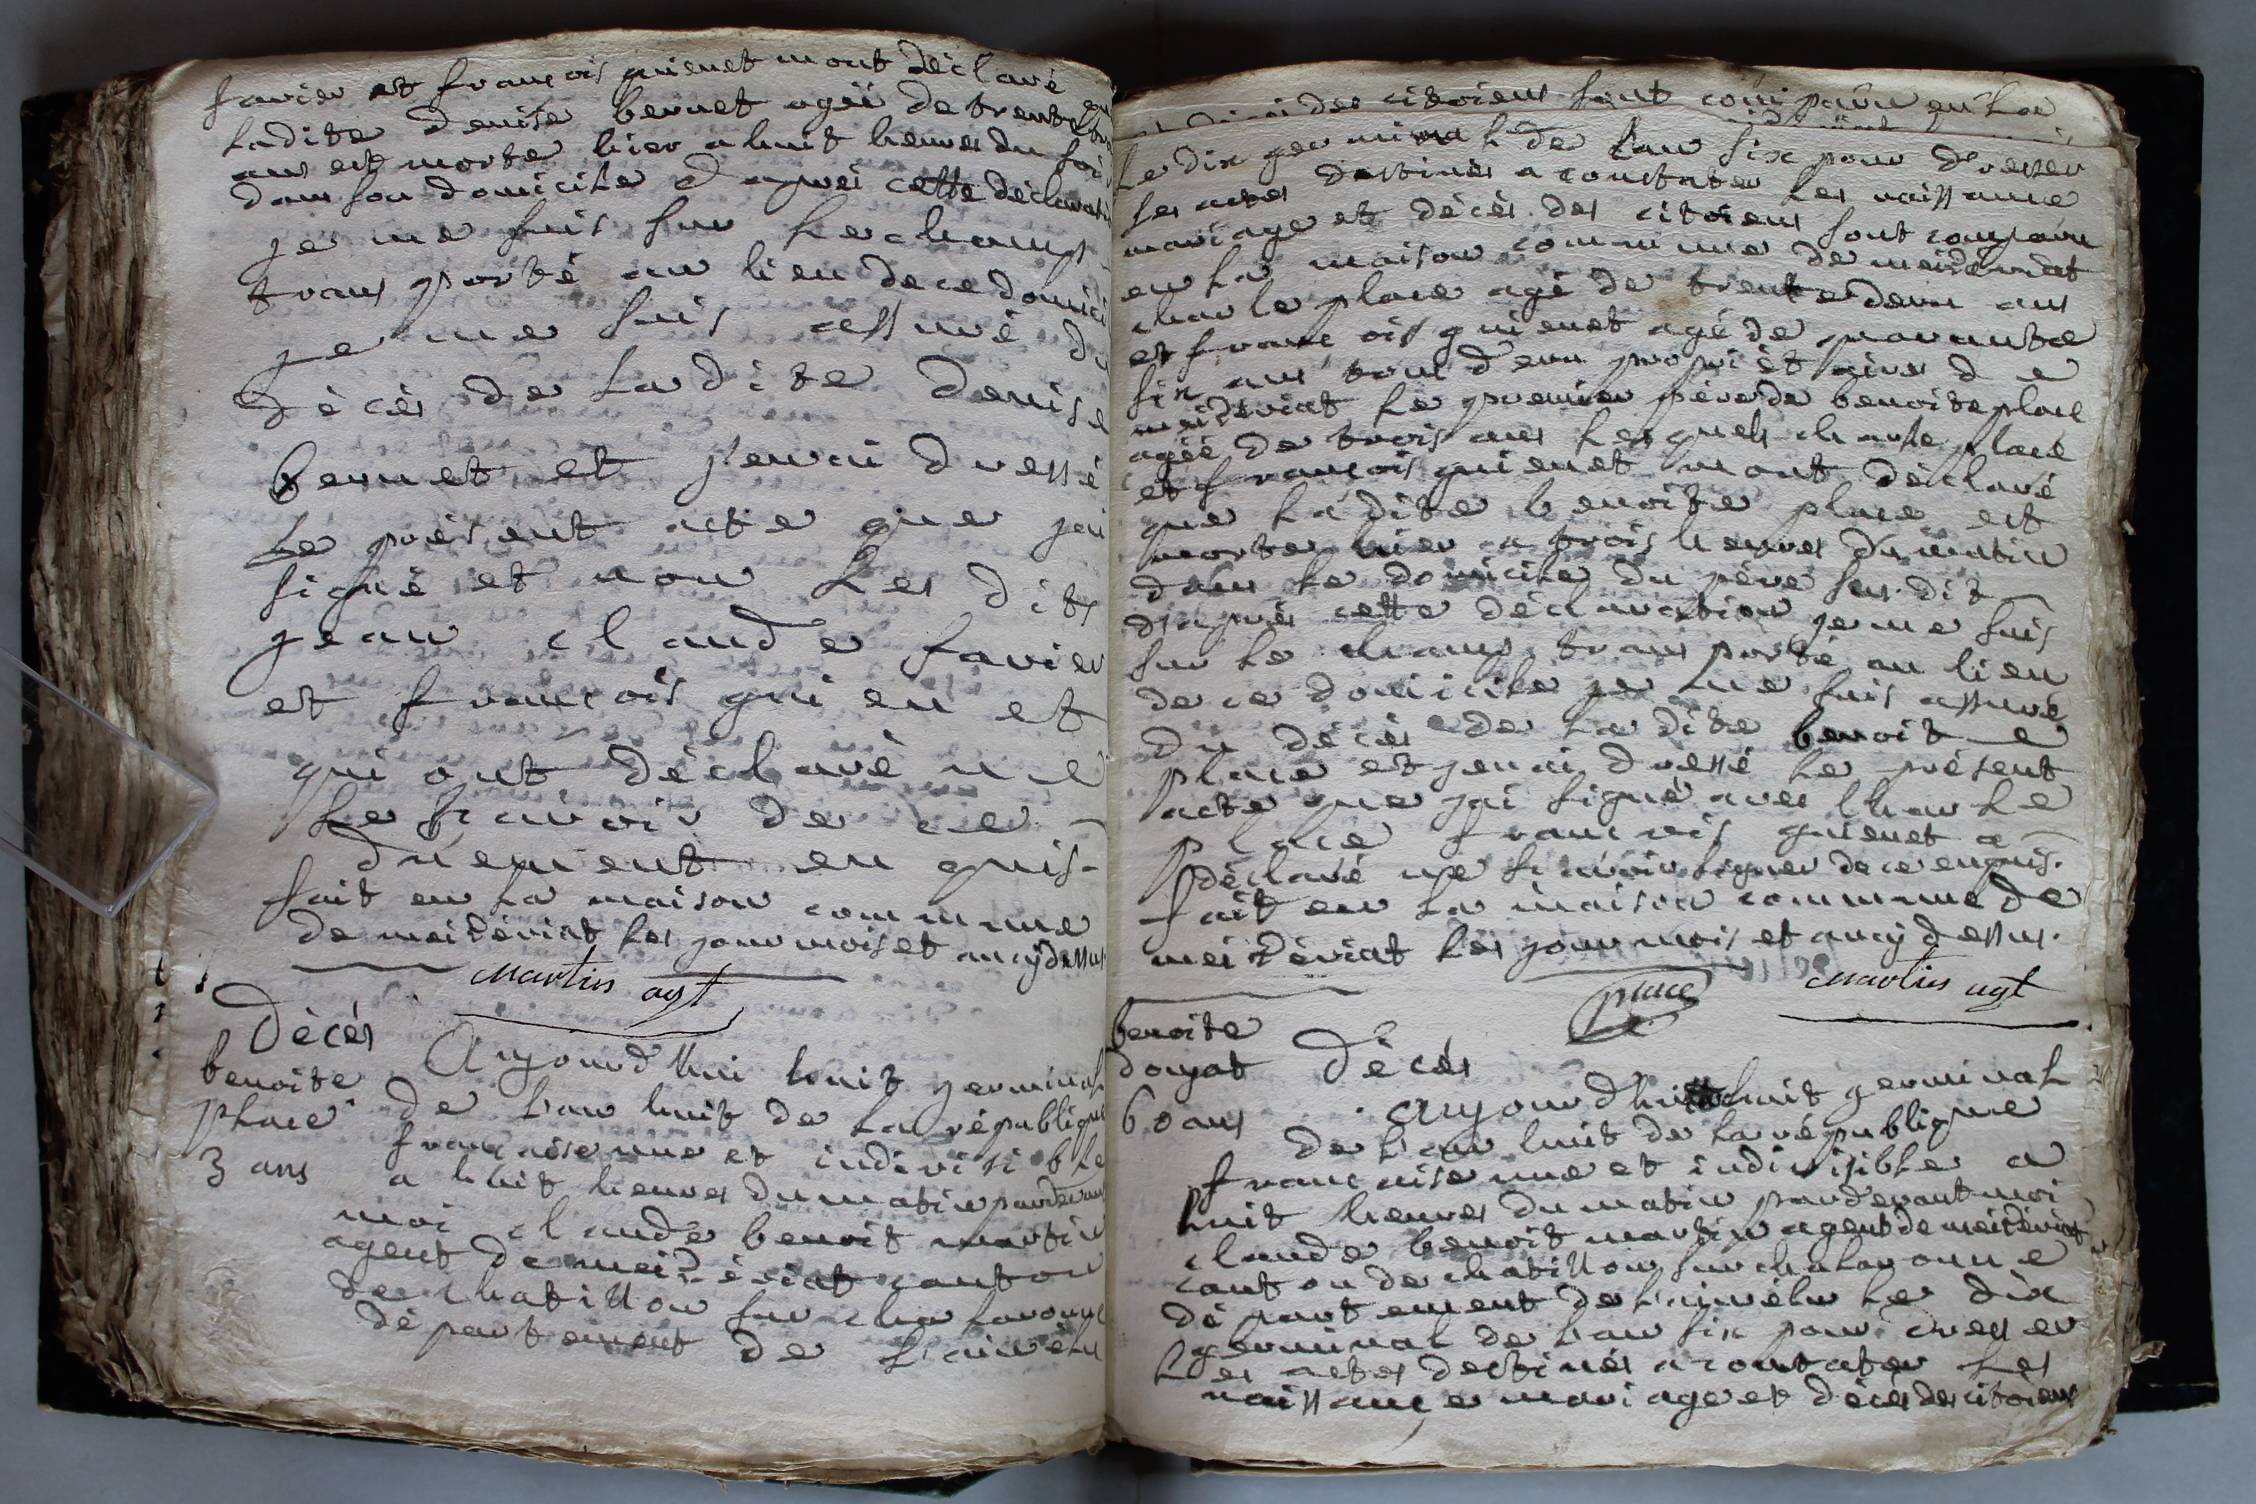 favier et francois guienet mont déclaré que
ladite denise bernet agéé de trente
ans est morte hier a huit heures du soir
dans son domicile d'aprés cette déclaration
je me suis sur le champs
trans porté au lieu de ce domici
je me suis assuré du
décés de ladite denise
bernet et j'en ai dressé
le présent acte que jai
signé et non les dits
jean claude favier
et francois guienet
qui ont déclaré ne
le scavoir de ce
duement en quis-
fait en la maison commune
de meidériat les jour mois et an cy dessus.
martin agt
Décés
benoite
place
3 ans
Aujourd'hui huit germinal
de l'an huit de la république
francaise une et indivisible
a huit heures du matin pardevant
moi claude benoit martin
agent de meidériat canton
de chatillon sur chalaronne
département de l'ain élu
et décés des citoiens sont comparu en la
le dix germinal de l'an six pour dresser
les actes destinés a constater les naissance
mariage et décés des citoiens sont comparu
en la maison commune de meidériat
charle place agé de trente deux ans
et francois guienet agé de quarante
six ans tous deux propriétaires de
meidériat le premier pére de benoite place
agéé de trois ans lesquels charle place
et francois guienet mont déclaré
que ladite benoite place est
morte hier a trois heures du matin
dans le domicile du pére sus. dit
d'aprés cette déclaration je me suis
sur le champs trans porté au lieu
de ce domicile je me suis assuré
du décés de la dite benoite
place et jen ai dressé le présent
acte que jai signé avec charle
place francois guienet a
déclaré ne scavoir signer de ce enquis.
fait en la maison commune de
meidériat les jour mois et an cy dessus.
place
martin agt
benoite
donjat
60 ans
Décés
Aujourdhui huit germinal
de l'an huit de la république
francaise une et indivisible a
huit heures du matin pardevant moi
claude benoit martin agent de meidériat
canton de chatillon sur chalaronne
département de l'ain élu le dix
germinal de l'an six pour dresser
les actes destinés a contater les
naissance mariage et décés des citoiens